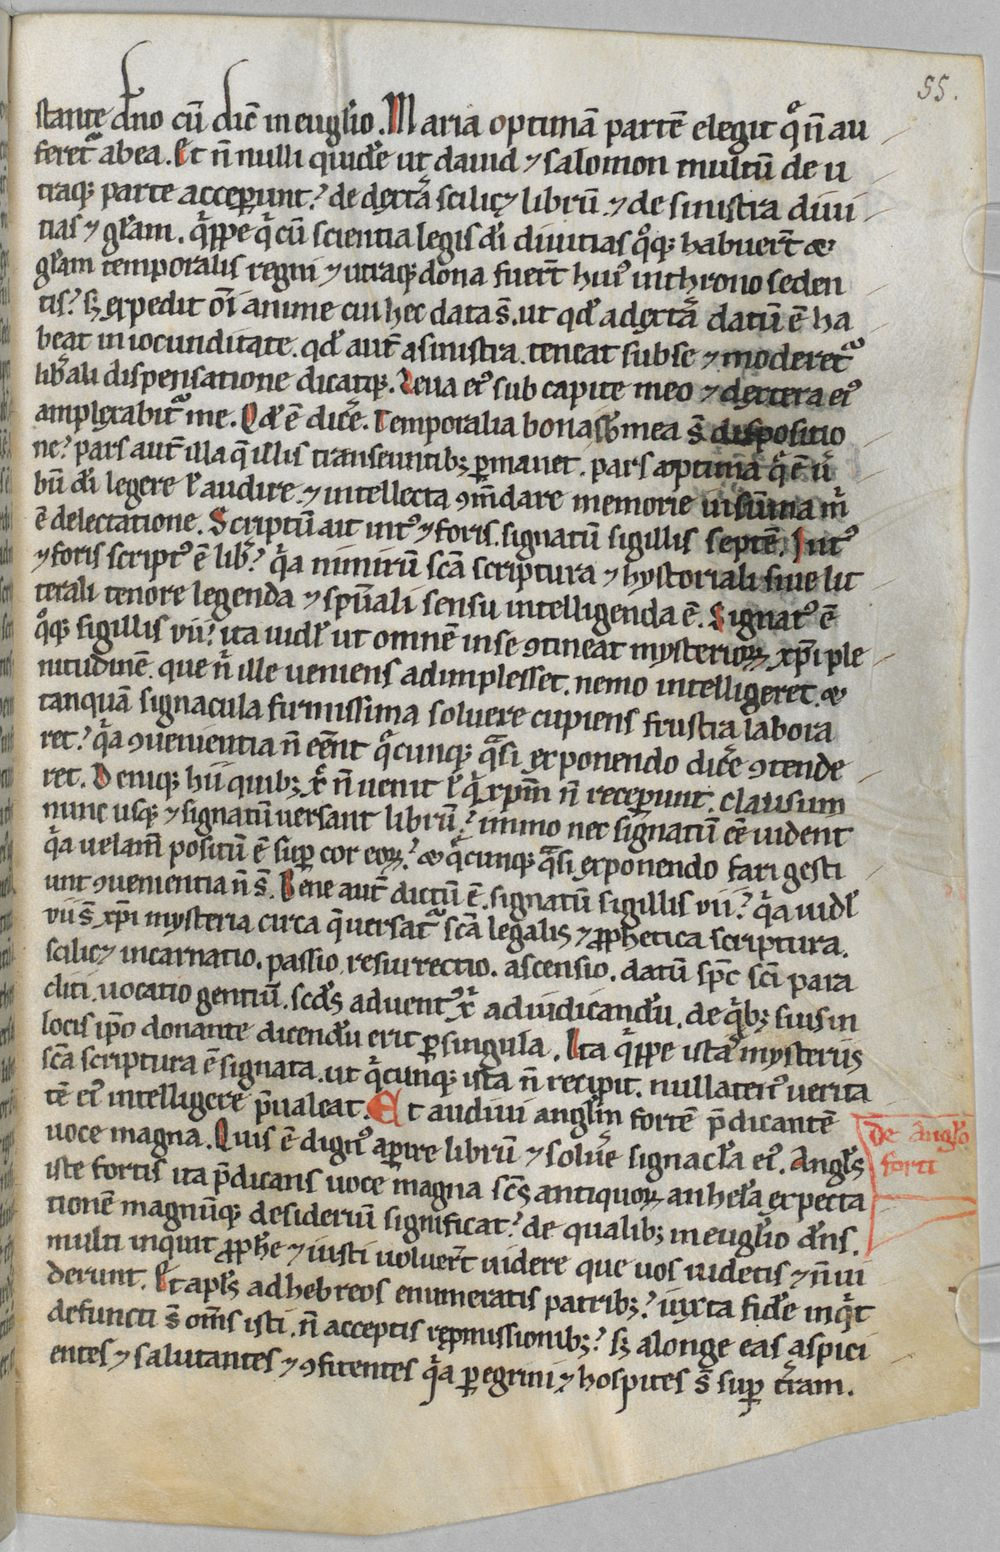 55.
stante dn̄o cū dic̄ in euglīo. Maria optimā partē elegit q̊ n̄ au
feret᷑ ab ea. Et n̄ nulli quidē ut dauid ⁊ salomon multū de u
traqꝫ parte acceꝑunt? de dext̄a scilicꝫ librū ⁊ de sinistra diui
tias ⁊ gl̄am. q̄ppe q̄ cū scientia legis dī diuitias q̊qꝫ habuer̄t &
gl̄am temporalis regni ⁊ utraqꝫ dona fuer̄t huiꝰ in throno seden
tis? sꝫ expedit om̄i anime cui hec data s̄. ut qd̄ a dext̄a datū ē ha
beat in iocunditate. qd̄ aut̄ a sinistra. teneat sub se ⁊ moderet᷑
lib̄ali dispensatione dicatqꝫ. Leua eiꝰ sub capite meo ⁊ dextera eiꝰ
amplexabit᷑ me. Qd̄ ē dic̄e. Temporalia bona sb̄ mea s̄ dispositio
ne? pars aut̄ illa q̄ illis transeuntibꝫ ꝑmanet. pars optima q̄ ē ū
bū dī legere ł audire ⁊ intellecta ꝯm̄dare memorie in sūma m̄
ē delectatione. Scriptū ait intꝰ ⁊ foris. signatū sigillis septē. Intꝰ
⁊ foris scriptꝰ ē lib̄? q̄a nimirū scā scriptura ⁊ hystoriali siue lit
terali tenore legenda ⁊ spūali sensu intelligenda ē. Signatꝰ ē
q̊qꝫ sigillis vii? ita uidł ut omnē in se ꝯtineat mysterioꝝ xp̄i ple
nitudinē. que n̄ ille ueniens adimplesset. nemo intelligeret. &
tanquā signacula firmissima soluere cupiens frustra labora
ret? q̄a ꝯuenientia n̄ eēnt q̄cunqꝫ q̄si exponendo dic̄e ꝯtende
ret. Deniqꝫ hii quibꝫ xp̄c n̄ uenit ł q̄ xp̄m n̄ receꝑunt. clausum
nunc usqꝫ ⁊ signatū uersant librū? immo nec signatū eē uident
q̄a uelam̄ positū ē suꝑ cor eoꝝ? & q̄cunqꝫ q̄si exponendo fari gesti
unt ꝯuenientia n̄ s̄. Bene aut̄ dictū ē. signatū sigillis vii? q̄a uidł
vii s̄ xp̄i mysteria circa q̄ uersat᷑ scā legalis ⁊ ꝓphetica scriptura.
scilicꝫ incarnatio. passio. resurrectio. ascensio. datū sp̄c sc̄i para
cliti. uocatio gentiū. scd̄s aduentꝰ xp̄i ad iudicandū. de q̄bꝫ suis in
locis ip̄o donante dicendū erit ꝑ singula. Ita q̄ppe istis mysteriis
scā scriptura ē signata. ut q̄cunqꝫ ista n̄ recipit. nullatenꝰ uerita
tē eiꝰ intelligere p̄ualeat. Et audiui angłm fortē p̄dicantē
uoce magna. Quis ē dignꝰ aꝑire librū ⁊ solūe signacła eiꝰ. Angłs
iste fortis ita p̄dicans uoce magna scōꝝ antiquoꝝ anhelā expecta
tionē magnūqꝫ desideriū significat? de qualibꝫ in euglīo dn̄s.
multi inquit ꝓphe ⁊ iusti uoluer̄t uidere que uos uidetis ⁊ n̄ ui
derunt. Et apłs ad hebreos enumeratis patribꝫ? iuxta fidē inq̄t
defuncti s̄ om̄s isti. n̄ acceptis repmissionibꝫ? sꝫ a longe eas aspici
entes ⁊ salutantes ⁊ ꝯfitentes q̄a ꝑegrini ⁊ hospites s̄ suꝑ t̄ram.
de Angło
forti